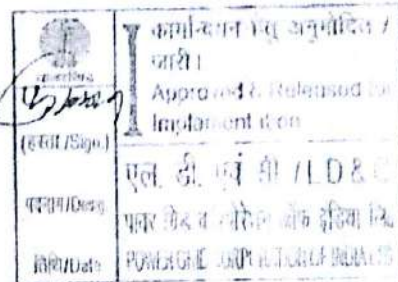 कार्यान्वयन हेतु अनुमोदित /
जारी।
Approved & Released for
Implementation
(हस्ता /Sign.)
एल. डी. एवं सी / L D & C
पदनाम/Desig.
पावर ग्रिड कारपोरेशन ऑफ इंडिया लि
तिथि/Date
POWER GRID CORPORATION OF INDIA LTD